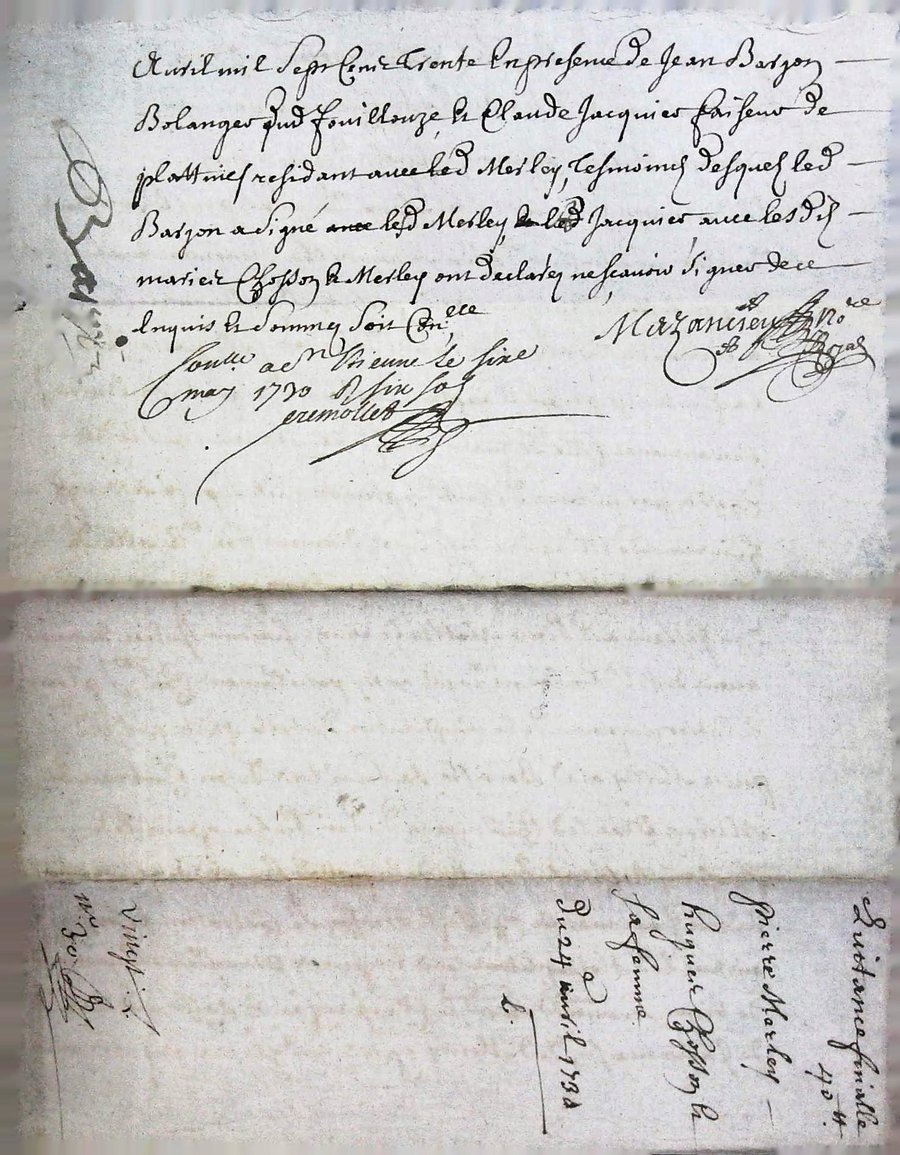 Auril mil Sept Cent Trente En presence de Jean Barjon
Bolanger dud fouillouze, et Claude Jacquier faiseur de
plattines residant auec led Merley, Tesmoins desquels led
Barjon a signé auec led Merley, led Jacquier auec lesdits
mariez Chosson et Merley ont declarez ne scauoir signer de ce
Enquis et sommez soit Con.lle
Mazancieu No.re Royal
Conlle a St Etienne le sixe
may 1730 R six sols
eremollet
Quittance finialle
40 tt.
pierre Marley
hugues Chosson et
sa femme
du 24 auril 1730
vingt